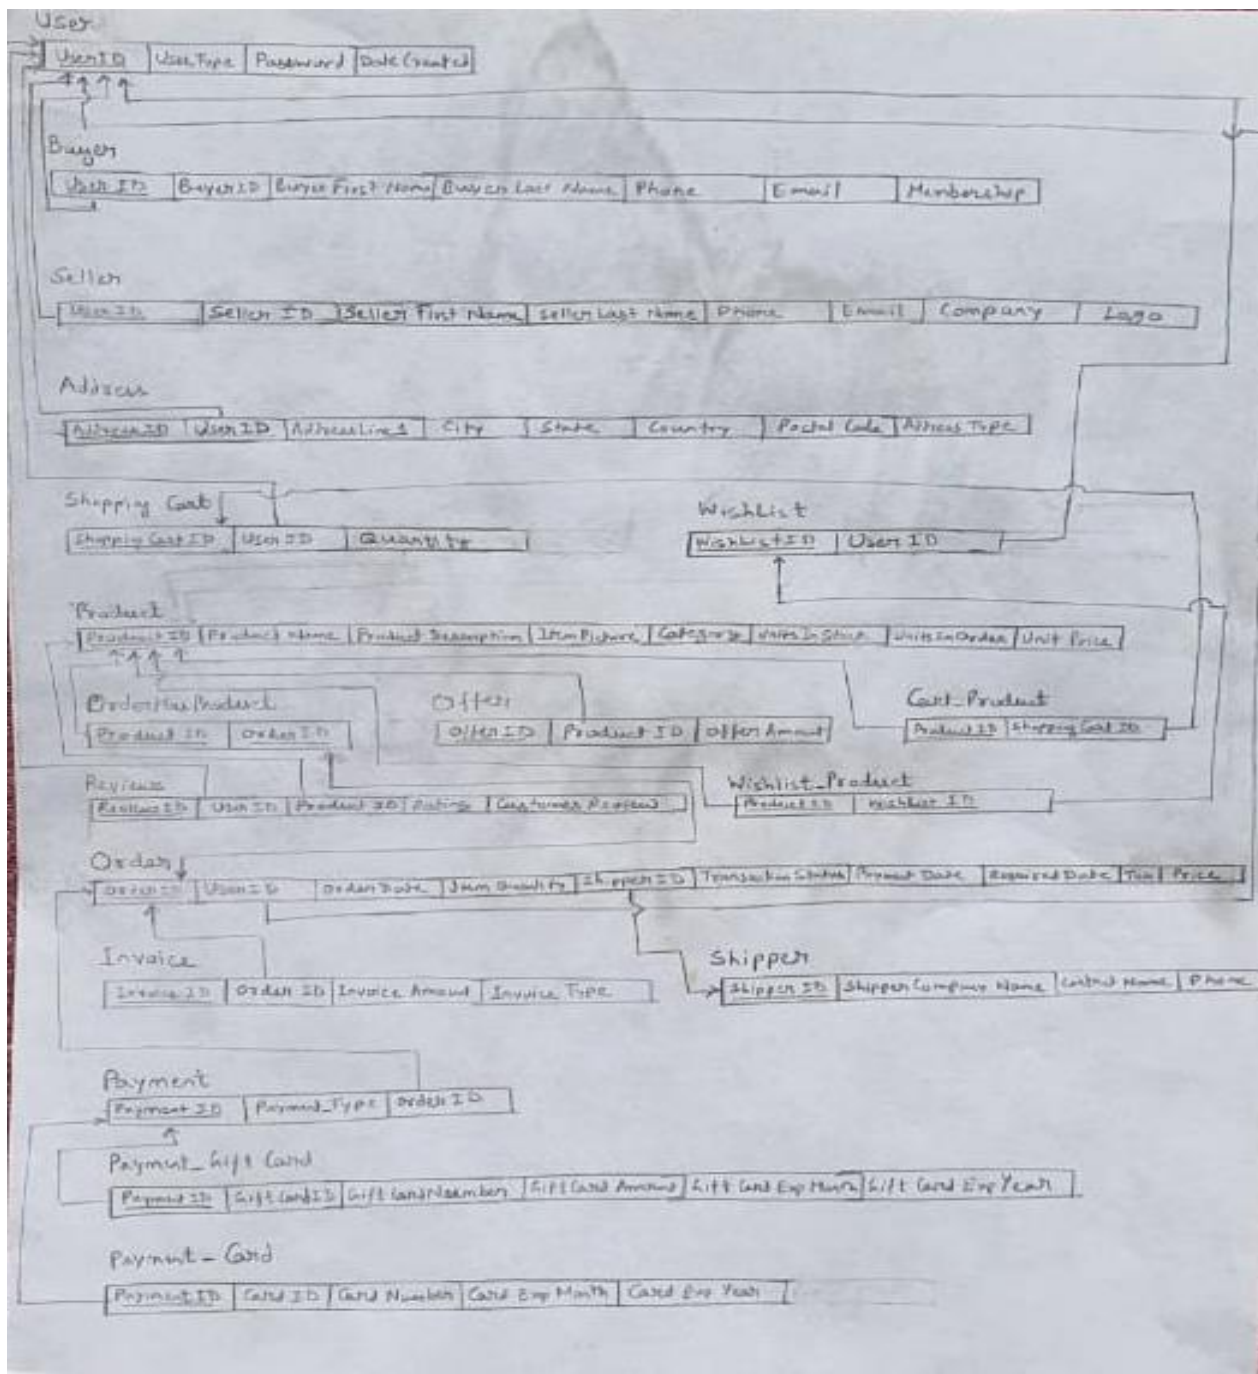 User
UserID UserType Password DateCreated
Buyer
User ID BuyerID Buyer First Name Buyer Last Name Phone Email Membership
Seller
User ID Seller ID Seller First Name Seller Last Name Phone Email Company Logo
Address
AddressID User ID AddressLine1 City State Country Postal Code Address Type
Shopping Cart
Shopping Cart ID User ID Quantity
WishList
WishListID User ID
Product
Product ID Product Name Product Description Item Picture Category UnitsInStock UnitsInOrder Unit Price
Product
Product ID Order ID
Offer
OfferID Product ID Offer Amount
Cart_Product
Product ID Shopping Cart ID
Reviews
ReviewID User ID Product ID Rating Customer Review
Wishlist_Product
Product ID Wishlist ID
Order
Order ID User ID Order Date Item Quantity Shipper ID Transaction Status Payment Date Required Date Tax Price
Invoice
Invoice ID Order ID Invoice Amount Invoice Type
Shipper
Shipper ID Shipper Company Name Contact Name Phone
Payment
Payment ID Payment_Type Order ID
Payment_Gift Card
Payment ID Gift Card ID Gift Card Number Gift Card Amount Gift Card Exp Month Gift Card Exp Year
Payment_Card
Payment ID Card ID Card Number Card Exp Month Card Exp Year